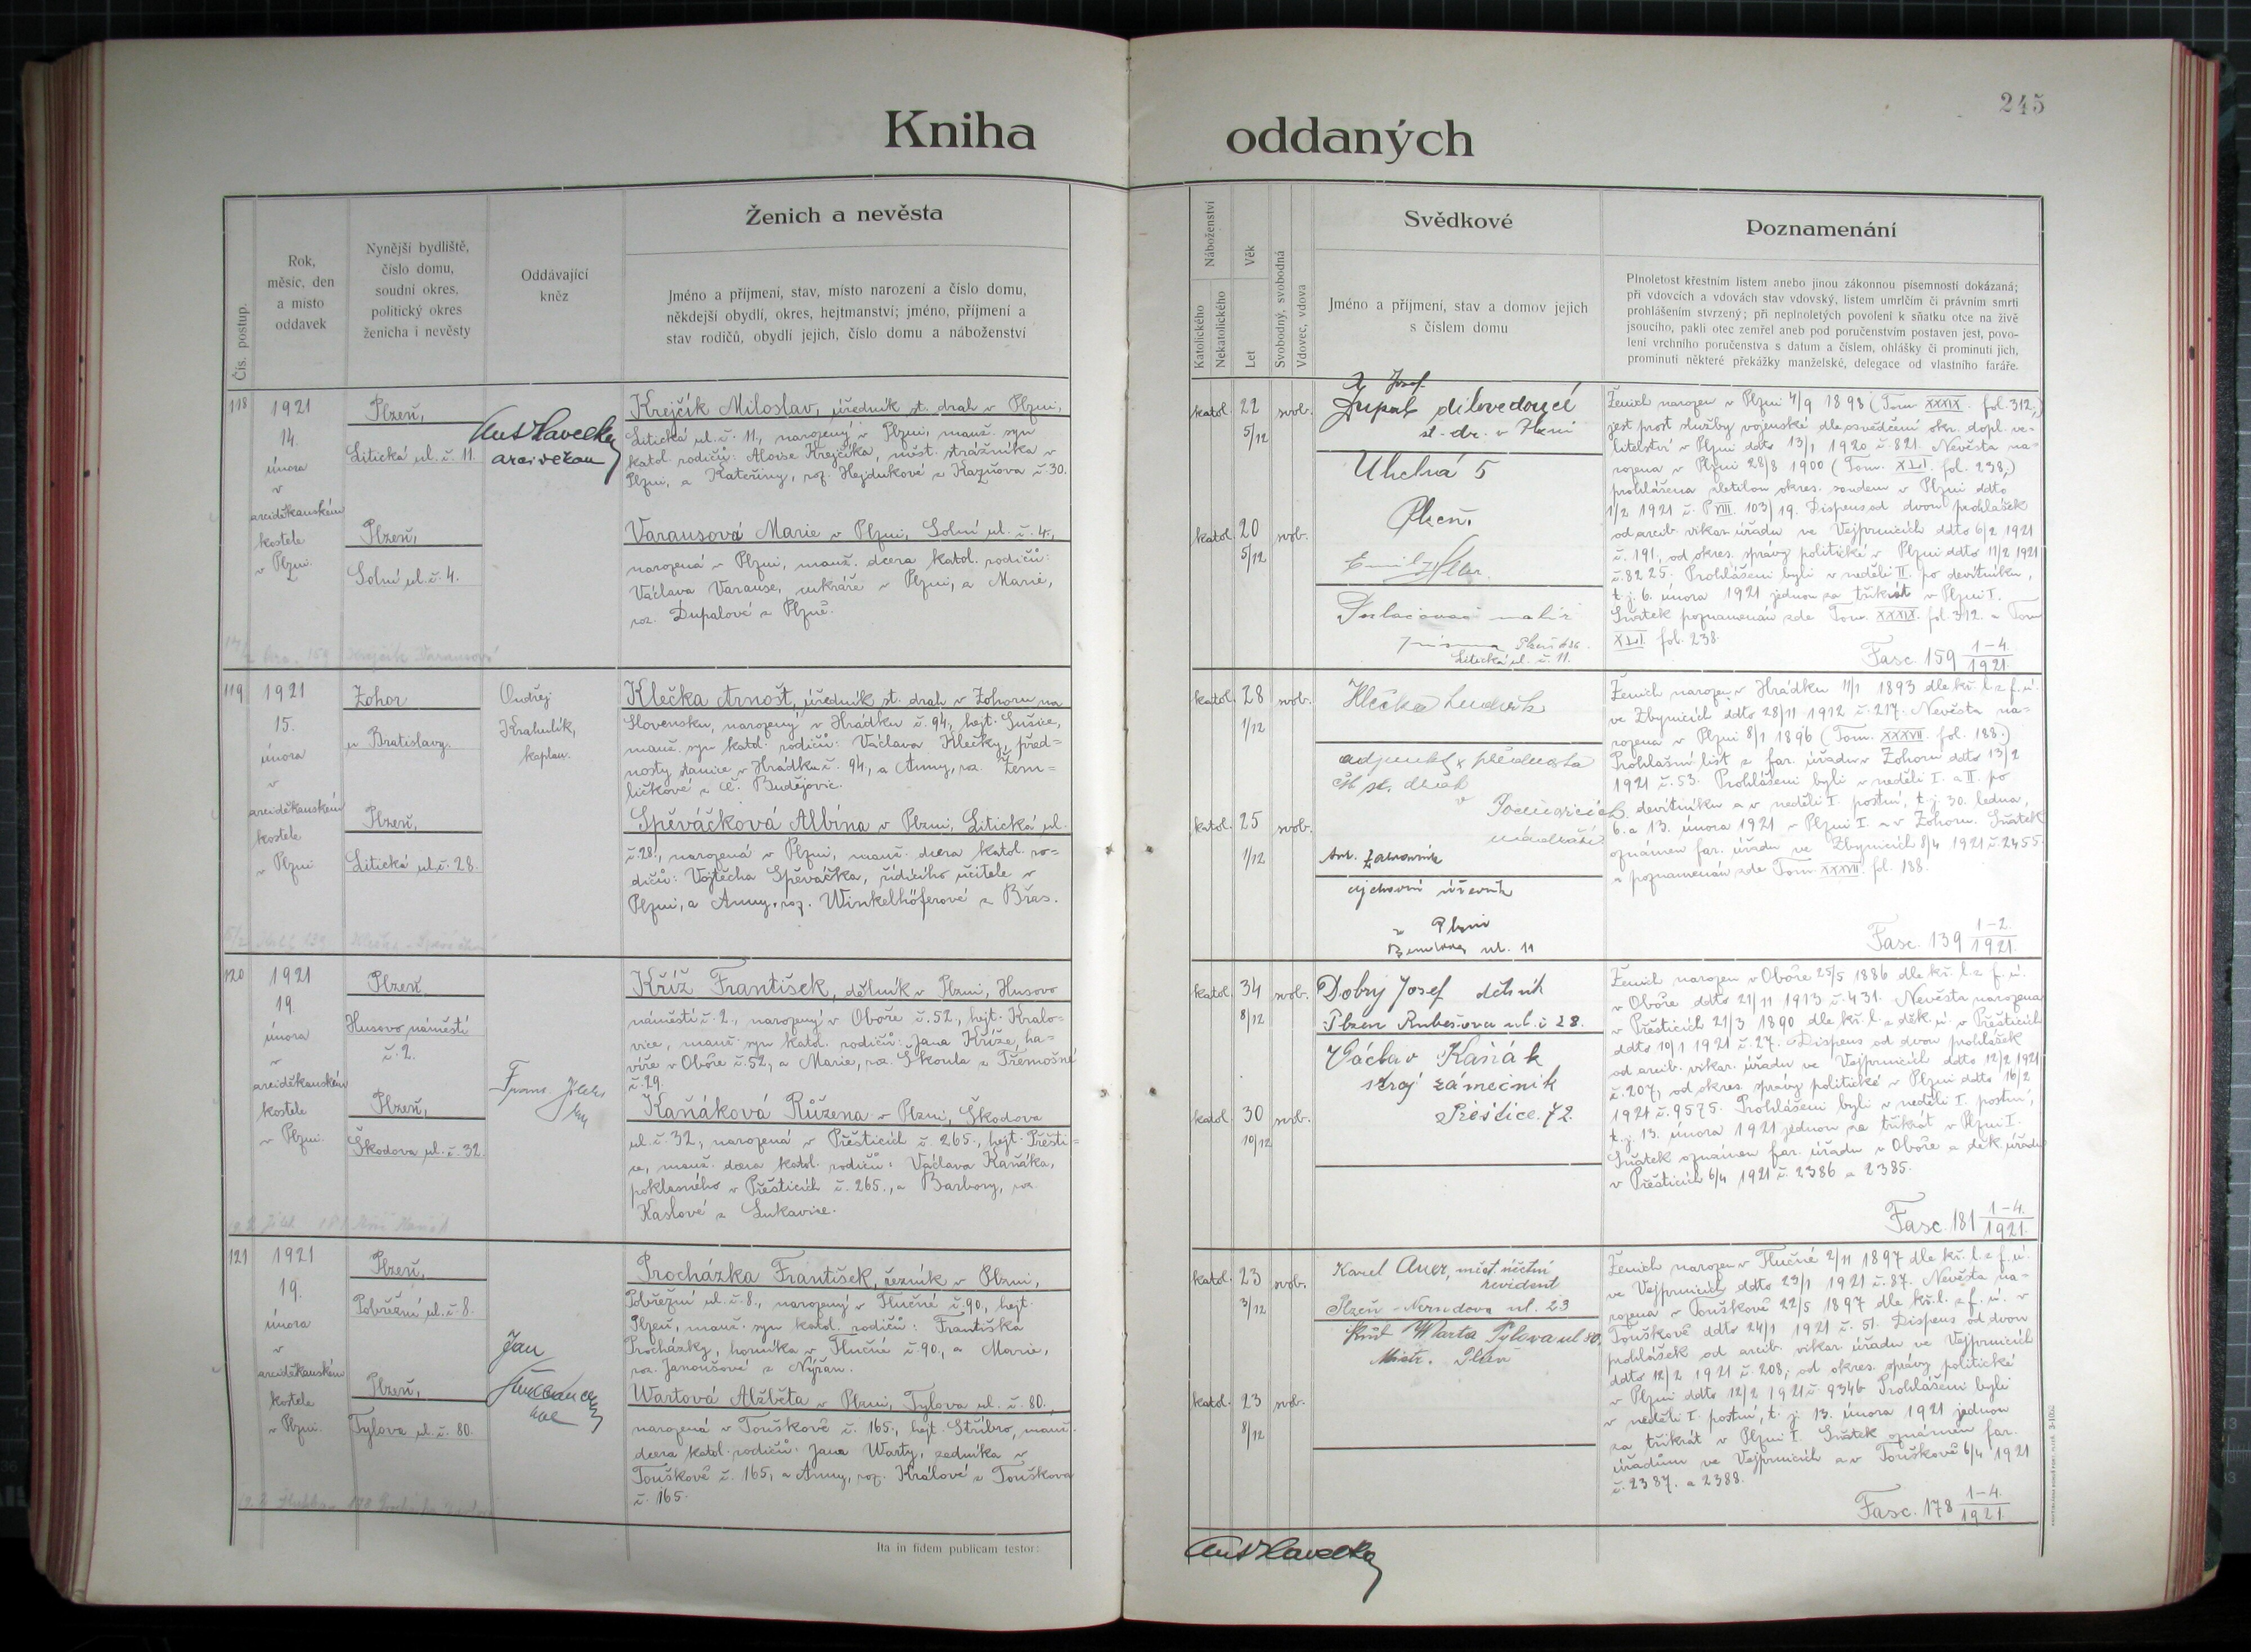 245
Kniha oddaných
Čís. postup.
Rok,
měsíc, den
a místo
oddavek
Nynější bydliště,
číslo domu,
soudní okres,
politický okres
ženicha i nevěsty
Oddávající
kněz
Ženich a nevěsta
Jméno a příjmení, stav, místo narození a číslo domu,
někdejší obydlí, okres, hejtmanství; jméno, příjmení a
stav rodičů, obydlí jejich, číslo domu a náboženství
Náboženství
Katolického
Nekatolického
Věk
Let
Svobodný, svobodná
Vdovec, vdova
Svědkové
Jméno a příjmení, stav a domov jejich
s číslem domu
Poznamenání
Plnoletost křestním listem anebo jinou zákonnou písemností dokázaná;
při vdovcích a vdovách stav vdovský, listem umrlčím či právním smrti
prohlášením stvrzený; při neplnoletých povolení k sňatku otce na živě
jsoucího, pakli otec zemřel aneb pod poručenstvím postaven jest, povo-
lení vrchního poručenstva s datum a číslem, ohlášky či prominutí jich,
prominutí některé překážky manželské, delegace od vlastního faráře.
118
1921
14.
února
v
arciděkanském
kostele
v Plzni.
Plzeň,
Litická ul. č. 11.
Plzeň,
Solní ul. č. 4.
Ant Havelka
arciděkan
Krejčík Miloslav, úředník st. drah v Plzni,
Litická ul. č. 11., narozený v Plzni, manž. syn
katol. rodičů: Aloise Krejčíka, měst. strážníka v
Plzni, a Kateřiny, roz. Hejdukové z Kazňova č. 30.
Varausová Marie v Plzni, Solní ul. č. 4.,
narozená v Plzni, manž. dcera katol. rodičů:
Václava Varause, cukráře v Plzni, a Marie,
roz. Dupalové z Plzně.
katol. 22 svob.
5/12
katol. 20 svob.
5/12
Josef
dílovedoucí
st. dr. v Plzni
Uhelná 5
Plzeň.
Emil
malíř
písma Plzeň
Litická ul. č. 11.
Ženich narozen v Plzni 4/9 1898 (Tom. XXXIX. fol. 312,)
jest prost služby vojenské dle osvědčení okr. dopl. ve-
litelství v Plzni ddto 13/1 1920 č. 821. Nevěsta na-
rozena v Plzni 28/8 1900 (Tom. XLI. fol. 238,)
prohlášena zletilou okres. soudem v Plzni ddto
1/2 1921 č. P VIII. 103/19. Dispens od dvou prohlášek
od arcib. vikar. úřadu ve Vejprnicích ddto 6/2 1921
č. 191, od okres. správy politické v Plzni ddto 11/2 1921
č. 8225. Prohlášeni byli v neděli II. po devítníku,
t. j. 6. února 1921 jednou za třikrát v Plzni I.
Sňatek poznamenán zde Tom. XXXIX. fol. 312. a Tom
XLI. fol. 238.
Fasc. 159 1-4./1921.
119
1921
15.
února
v
arciděkanském
kostele
v Plzni
Zohor
u Bratislavy.
Plzeň,
Litická ul. č. 28.
Ondřej
Krahulík,
kaplan.
Klečka Arnošt, úředník st. drah v Zohoru na
Slovensku, narozený v Hrádku č. 94, hejt. Sušice,
manž. syn katol. rodičů: Václava Klečky, před-
nosty stanice v Hrádku č. 94., a Anny, roz. Žem-
ličkové z Č. Budějovic.
Spěváčková Albína v Plzni, Litická ul.
č. 28., narozená v Plzni, manž. dcera katol. ro-
dičů: Vojtěcha Spěváčka, řídícího učitele v
Plzni, a Anny, roz. Winkelhöferové z Břas.
katol. 28 svob.
1/12
katol. 25 svob.
1/12
Klečka Luděk
adjunkt přednosta
čs st. drah
v
nádraží
Ant.
v Plzni
ul. 11
Ženich narozen v Hrádku 11/1 1893 dle kř. l. z f. ú.
ve Zbynicích ddto 28/11 1912 č. 217. Nevěsta na-
rozena v Plzni 8/1 1896 (Tom. XXXVII. fol. 188.)
Prohlašní list z far. úřadu v Zohoru ddto 13/2
1921 č. 53. Prohlášeni byli v neděli I. a II. po
devítníku a v neděli I. postní, t. j. 30. ledna,
6. a 13. února 1921 v Plzni I. a v Zohoru. Sňatek
oznámen far. úřadu ve Zbynicích 8/4 1921 č. 2455.
a poznamenán zde Tom. XXXVII. fol. 188.
Fasc. 139 1-2./1921.
120
1921
19.
února
v
arciděkanském
kostele
v Plzni.
Plzeň
Husovo náměstí
č. 2.
Plzeň,
Škodova ul. č. 32.
Křiž František, dělník v Plzni, Husovo
náměstí č. 2., narozený v Oboře č. 52., hejt. Kralo-
vice, manž. syn katol. rodičů: Jana Kříže, ha-
víře v Oboře č. 52., a Marie, roz. Škoula z Třemošné
č. 29.
Kaňáková Růžena v Plzni, Škodova
ul. č. 32., narozená v Přešticích č. 265., hejt. Přešti-
ce, manž. dcera katol. rodičů: Václava Kaňáka,
poklasného v Přešticích č. 265., a Barbory, roz.
Kaslové z Lukavice.
katol. 34 svob.
8/12
katol. 30 svob.
10/12
Dobrý Josef dělník
Plzeň Rubešova ul. č 28.
Václav Kaňák
stroj zámečník
Přeštice 72.
Ženich narozen v Oboře 25/5 1886 dle kř. l. z f. ú.
v Oboře ddto 21/11 1913 č. 431. Nevěsta narozena
v Přešticích 21/3 1890 dle kř. l. z děk. ú. v Přešticích
ddto 10/1 1921 č. 27. Dispens od dvou prohlášek
od arcib. vikar. úřadu ve Vejprnicích ddto 12/2 1921
č. 207, od okres. správy politické v Plzni ddto 16/2
1921 č. 9575. Prohlášeni byli v neděli I. postní,
t. j. 13. února 1921 jednou za třikrát v Plzni I.
Sňatek oznámen far. úřadu v Oboře a děk. úřadu
v Přešticích 6/4 1921 č. 2386 a 2385.
Fasc. 181 1-4./1921.
121
1921
19.
února
v
arciděkanském
kostele
v Plzni.
Plzeň,
Pobřežní ul. č. 8.
Plzeň,
Tylova ul. č. 80.
Jan
Procházka František, řezník v Plzni,
Pobřežní ul. č. 8., narozený v Tlučné č. 90, hejt.
Plzeň, manž. syn katol. rodičů: Františka
Procházky, horníka v Tlučné č. 90., a Marie,
roz. Janoušové z Nýřan.
Wartová Alžběta v Plzni, Tylova ul. č. 80.,
narozená v Touškově č. 165., hejt. Stříbro, manž.
dcera katol. rodičů: Jana Warty, zedníka v
Touškově č. 165, a Anny, roz. Králové z Touškova
č. 165.
katol. 23 svob.
3/12
katol. 23 svob.
8/12
Karel Auer, měst. účetní
revident
Plzeň - Nerudova ul. 23
Warta Tylova ul 80.
Plzeň
Ženich narozen v Tlučné 2/11 1897 dle kř. l. z f. ú.
ve Vejprnicích ddto 23/1 1921 č. 87. Nevěsta na-
rozena v Touškově 22/5 1897 dle kř. l. z f. ú. v
Touškově ddto 24/1 1921 č. 51. Dispens od dvou
prohlášek od arcib. vikar. úřadu ve Vejprnicích
ddto 12/2 1921 č. 208, od okres. správy politické
v Plzni ddto 12/2 1921 č. 9346. Prohlášeni byli
v neděli I. postní, t. j. 13. února 1921 jednou
za třikrát v Plzni I. Sňatek oznámen far.
úřadům ve Vejprnicích a v Touškově 6/4 1921
č. 2387. a 2388.
Fasc. 178 1-4./1921.
Ita in fidem publicam testor:
Ant Havelka